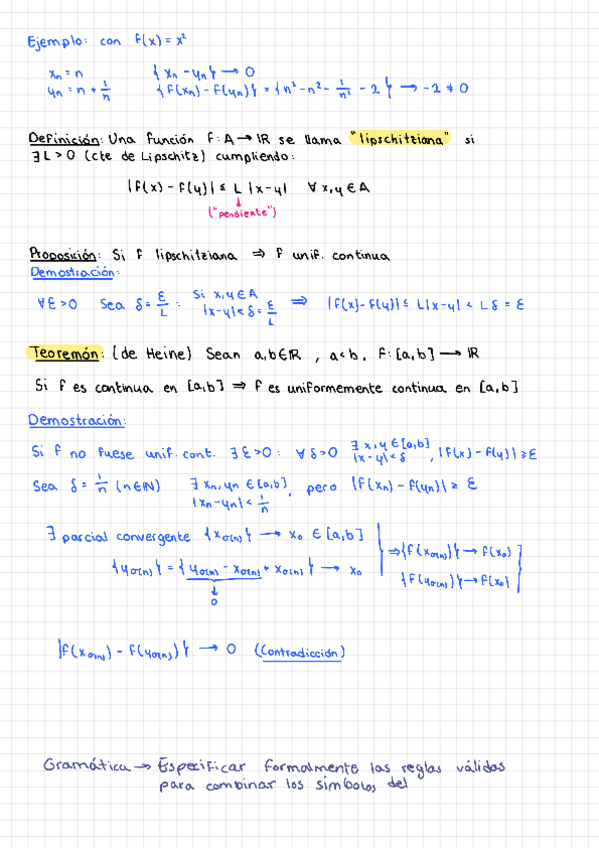 Ejemplo: con f(x) = x²
xₙ = n    { xₙ - yₙ } → 0
yₙ = n + 1/n    { f(xₙ) - f(yₙ) } = { n² - n² - 1/n² - 2 } → -2 ≠ 0
Definición: Una función f: A → ℝ se llama "lipschitziana" si
∃ L > 0 (cte de Lipschitz) cumpliendo:
|f(x) - f(y)| ≤ L |x-y|   ∀ x,y ∈ A
("pendiente")
Proposición: Si f lipschitziana ⇒ f unif. continua
Demostración:
∀ε>0 Sea δ = ε/L : Si x,y ∈ A |x-y| < δ = ε/L ⇒ |f(x) - f(y)| ≤ L|x-y| < Lδ = ε
Teoremón: (de Heine) Sean a,b ∈ ℝ , a < b, f: [a,b] → ℝ
Si f es continua en [a,b] ⇒ f es uniformemente continua en [a,b]
Demostración:
Si f no fuese unif. cont. ∃ε>0: ∀δ>0 ∃ x,y ∈ [a,b] |x-y| < δ , |f(x) - f(y)| ≥ ε
Sea δ = 1/n (n ∈ ℕ) ∃ xₙ, yₙ ∈ [a,b], |xₙ-yₙ| < 1/n pero |f(xₙ) - f(yₙ)| ≥ ε
∃ parcial convergente { x_σ(n) } → x₀ ∈ [a,b] ⇒ { f(x_σ(n)) } → f(x₀)
{ y_σ(n) } = { y_σ(n) - x_σ(n) + x_σ(n) } → x₀ { f(y_σ(n)) } → f(x₀)
0
|f(x_σ(n)) - f(y_σ(n)) } → 0 (Contradicción)
Gramática → Especificar formalmente las reglas válidas
para combinar los símbolos del